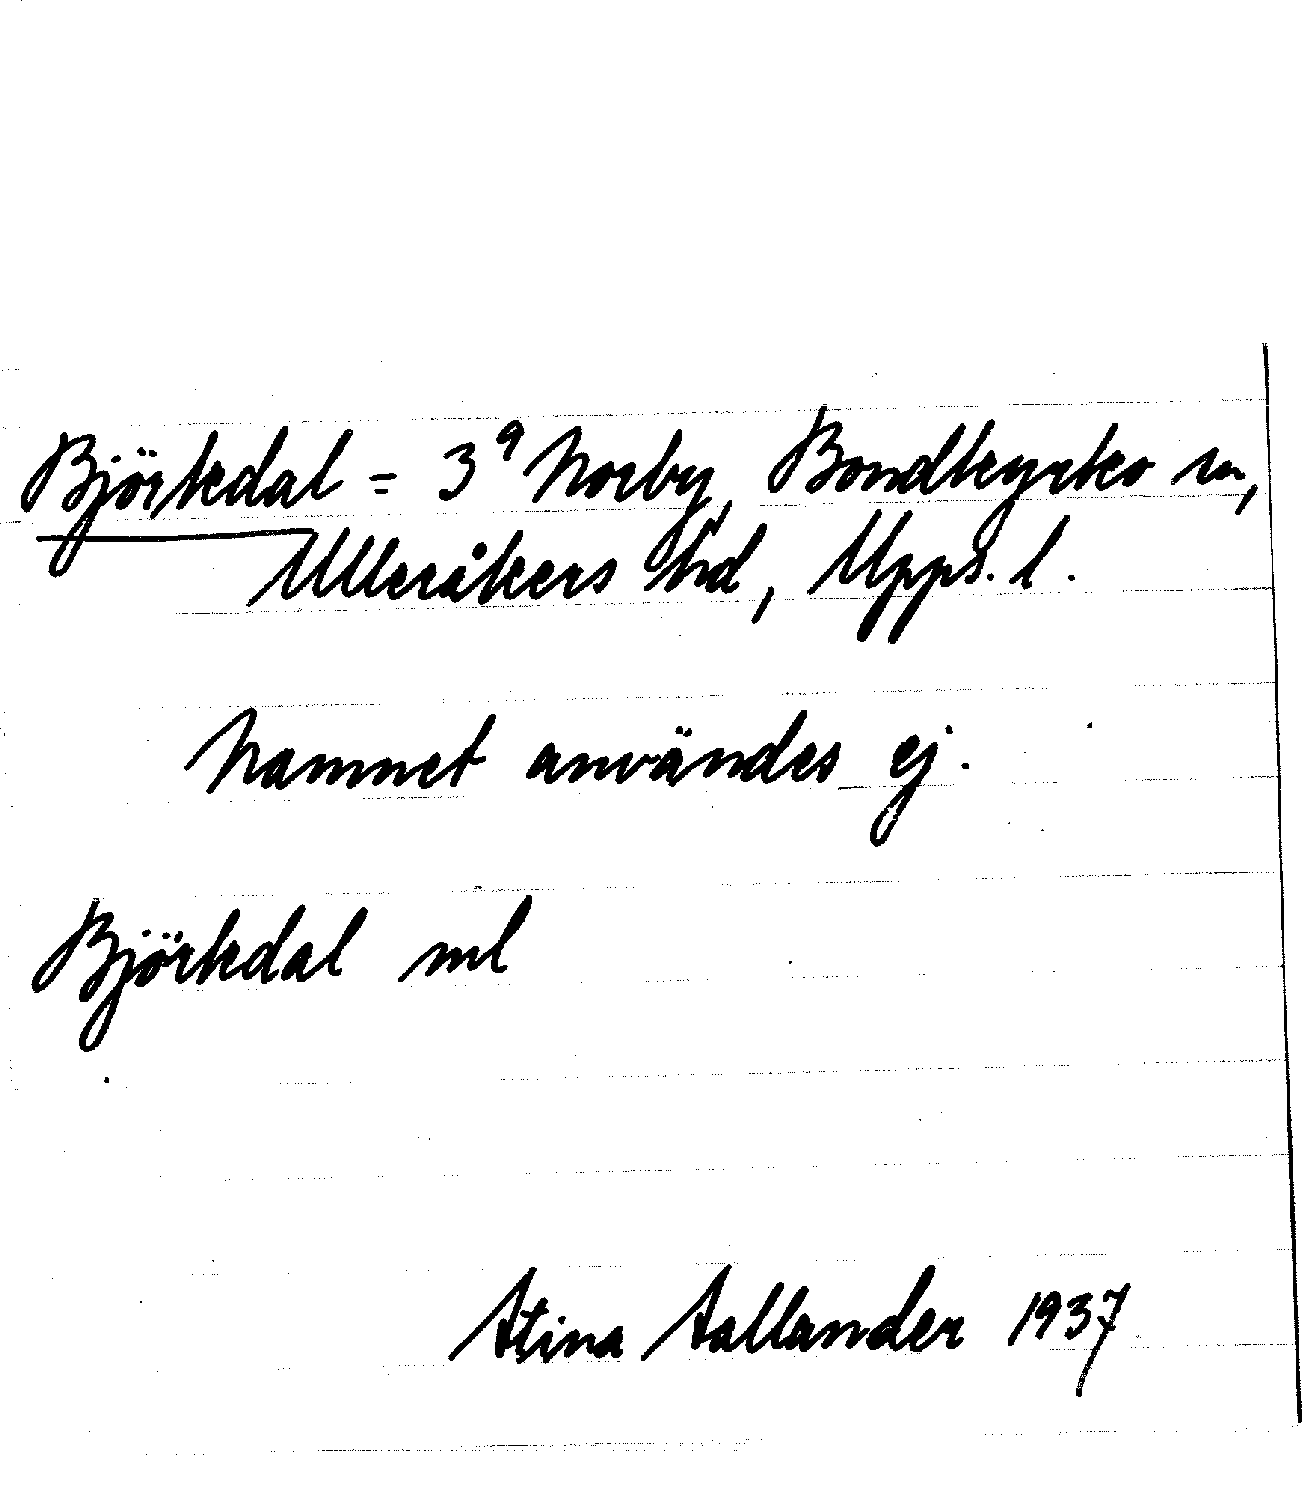 Björkdal = 3⁹ Norby, Bondkyrko sn,
Ulleråkers hd, Upps. l.
Namnet användes ej.
Björkdal ml
Stina Sallander 1937